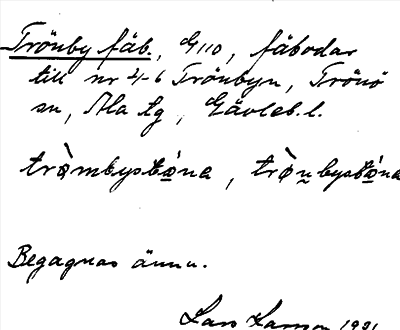 Trönby fäb., G 110, fäbodar
till nr 2-6 Trönbyn, Trönö
sn, Ala tg, Gävleb. l.
trò̀mbystǿna, trò̀nbystǿna
Begagnas ännu.
Lars Larsson 1931